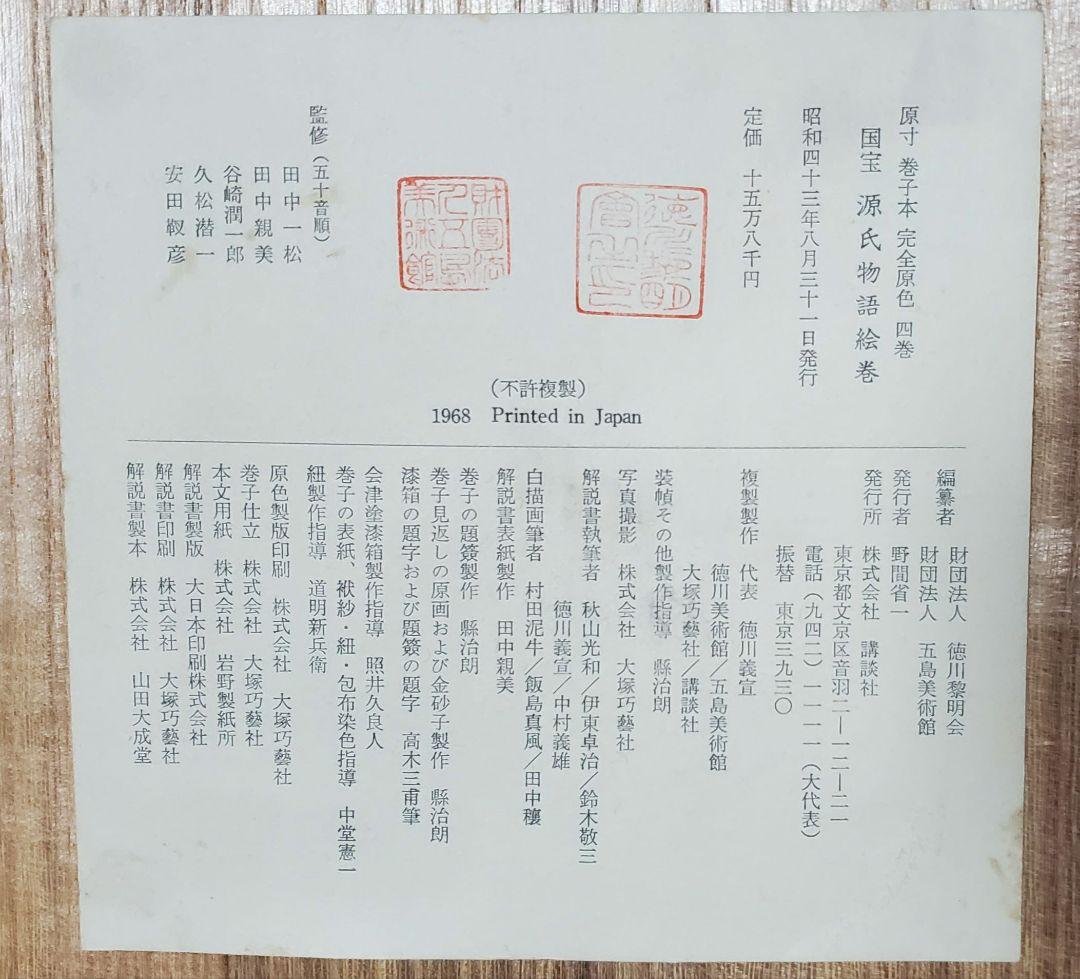 原寸 巻子本 完全原色 四巻
国宝 源氏物語絵巻
昭和四十三年八月三十一日発行
定価 十五万八千円
財團法人五島美術館
監修(五十音順)
田中一松
田中親美
谷崎潤一郎
久松潜一
安田靫彦
(不許複製)
1968 Printed in Japan
編纂者 財団法人 徳川黎明会
財団法人 五島美術館
発行者 野間省一
発行所 株式会社 講談社
東京都文京区音羽二―一二―二一
電話(九四二)一一一一(大代表)
振替 東京三九三〇
複製製作 代表 徳川義宣
徳川美術館/五島美術館
大塚巧藝社/講談社
装幀その他製作指導 縣治朗
写真撮影 株式会社 大塚巧藝社
解説書執筆者 秋山光和/伊東卓治/鈴木敬三
徳川義宣/中村義雄
白描画筆者 村田泥牛/飯島真風/田中穰
解説書表紙製作 田中親美
巻子の題簽製作 縣治朗
巻子見返しの原画および金砂子製作 縣治朗
漆箱の題字および題簽の題字 高木三甫筆
会津塗漆箱製作指導 照井久良人
巻子の表紙、袱紗・紐・包布染色指導 中堂憲一
紐製作指導 道明新兵衛
原色製版印刷 株式会社 大塚巧藝社
巻子仕立 株式会社 大塚巧藝社
本文用紙 株式会社 岩野製紙所
解説書製版 大日本印刷株式会社
解説書印刷 株式会社 大塚巧藝社
解説書製本 株式会社 山田大成堂